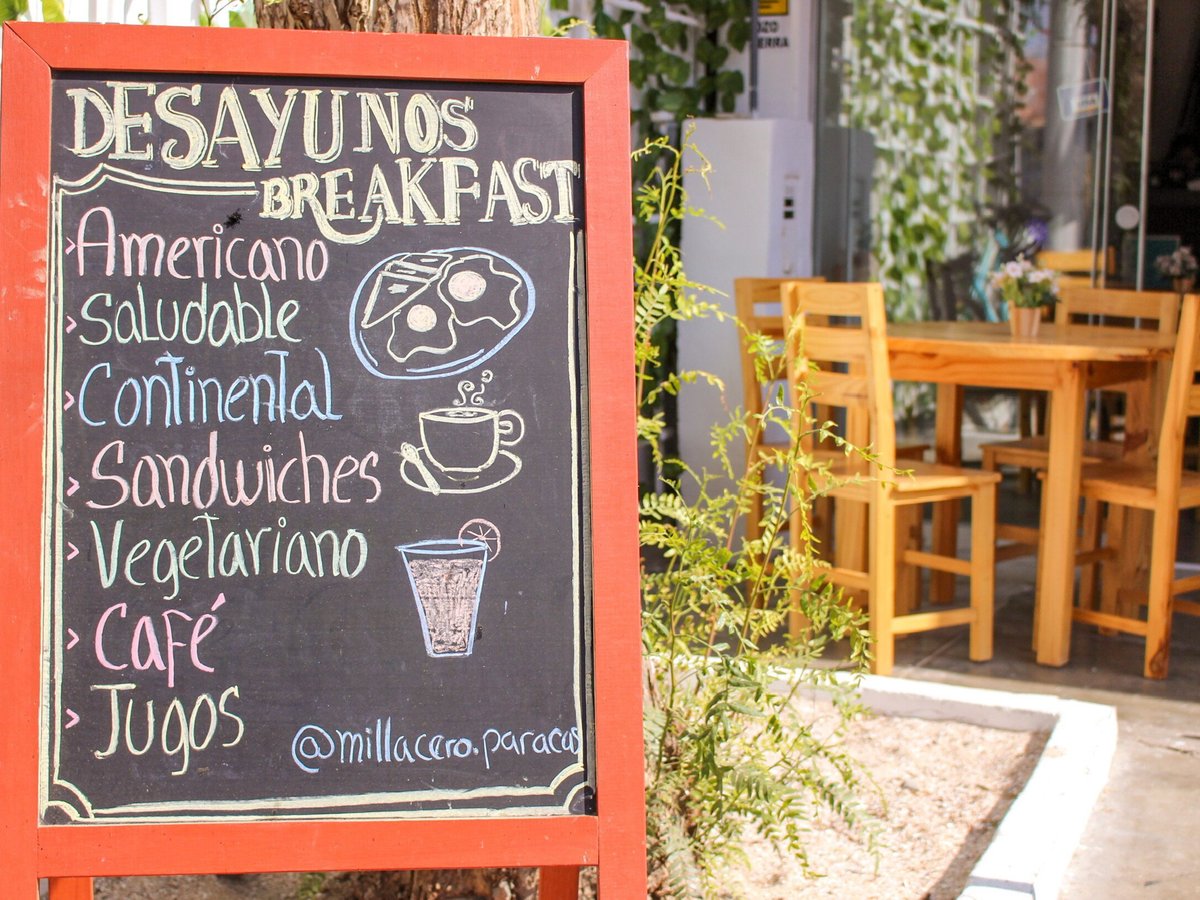 DESAYUNOS
BREAKFAST
> Americano
> Saludable
> Continental
> Sandwiches
> Vegetariano
> Café
> Jugos
@millacero.paracas
OZO
ERRA